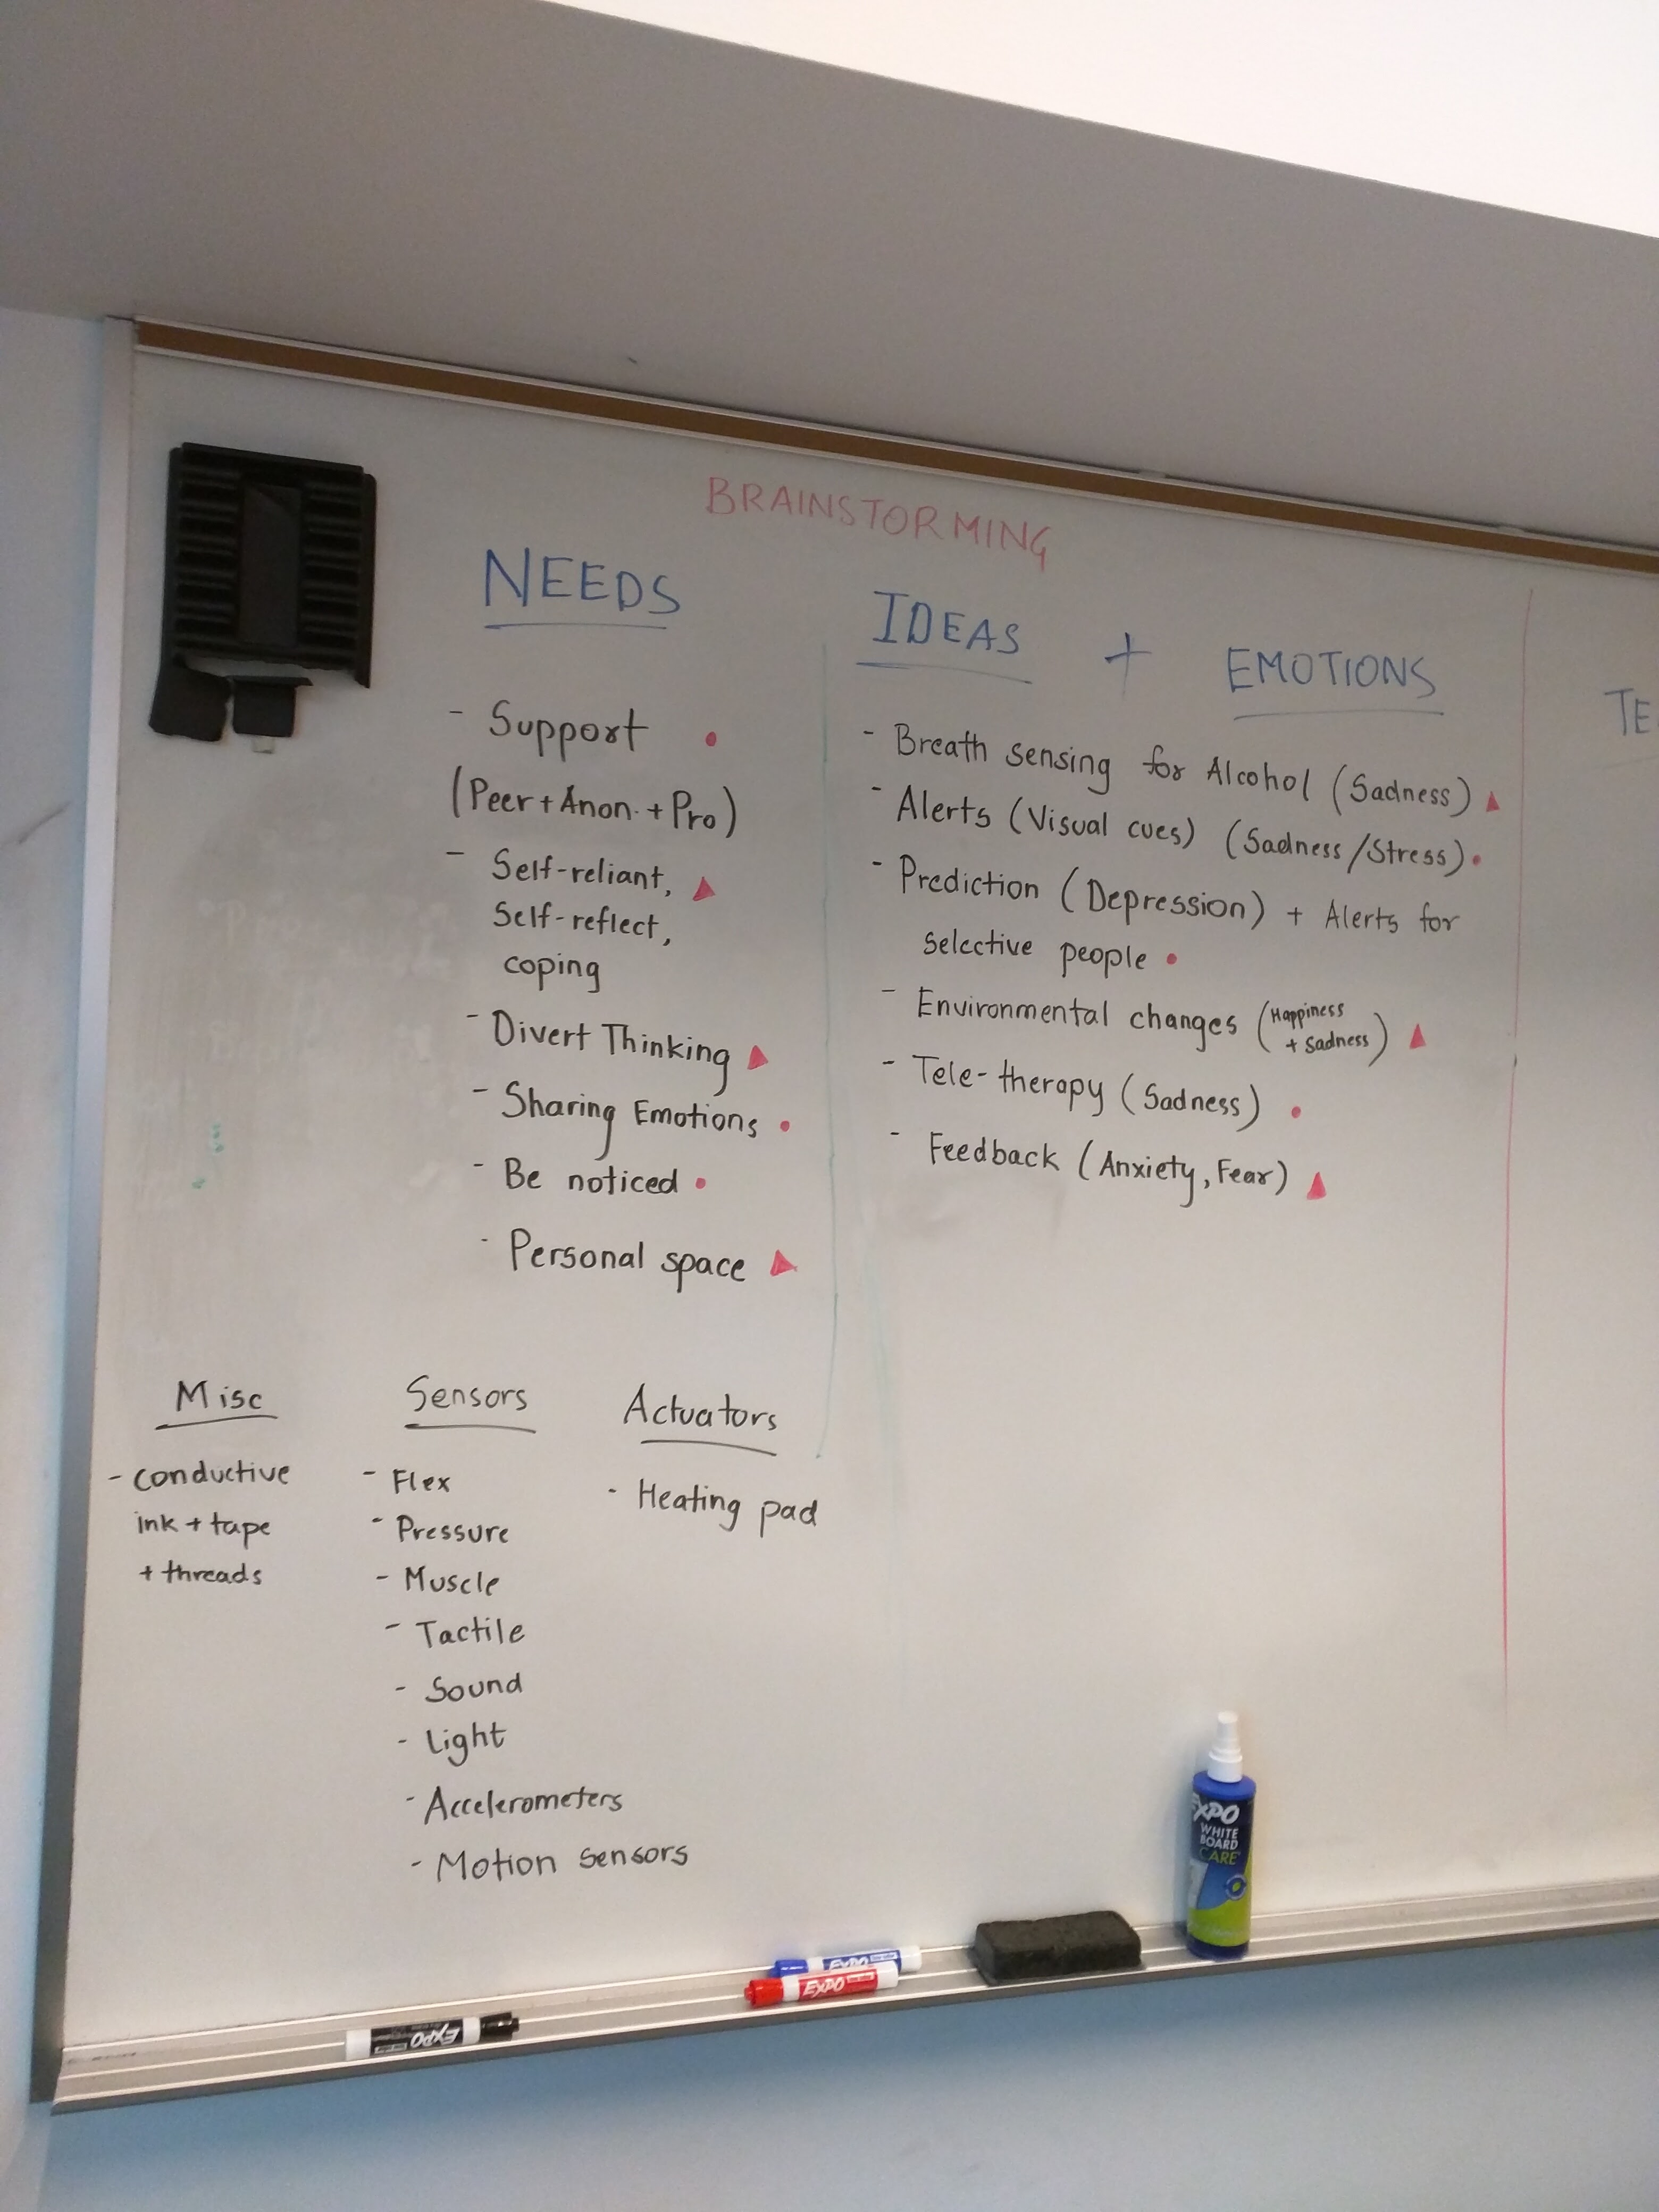 BRAINSTORMING
NEEDS
- Support •
(Peer + Anon. + Pro)
- Self-reliant, ▲
Self-reflect,
coping
- Divert Thinking ▲
- Sharing Emotions •
- Be noticed •
- Personal space ▲
IDEAS + EMOTIONS
- Breath sensing for Alcohol (Sadness) ▲
- Alerts (Visual cues) (Sadness/Stress) •
- Prediction (Depression) + Alerts for
selective people •
- Environmental changes (Happiness
+ Sadness) ▲
- Tele-therapy (Sadness) •
- Feedback (Anxiety, Fear) ▲
TE
Misc
- conductive
ink + tape
+ threads
Sensors
- Flex
- Pressure
- Muscle
- Tactile
- Sound
- Light
- Accelerometers
- Motion sensors
Actuators
- Heating pad
EXPO
WHITE
BOARD
CARE
EXPO
EXPO
EXPO